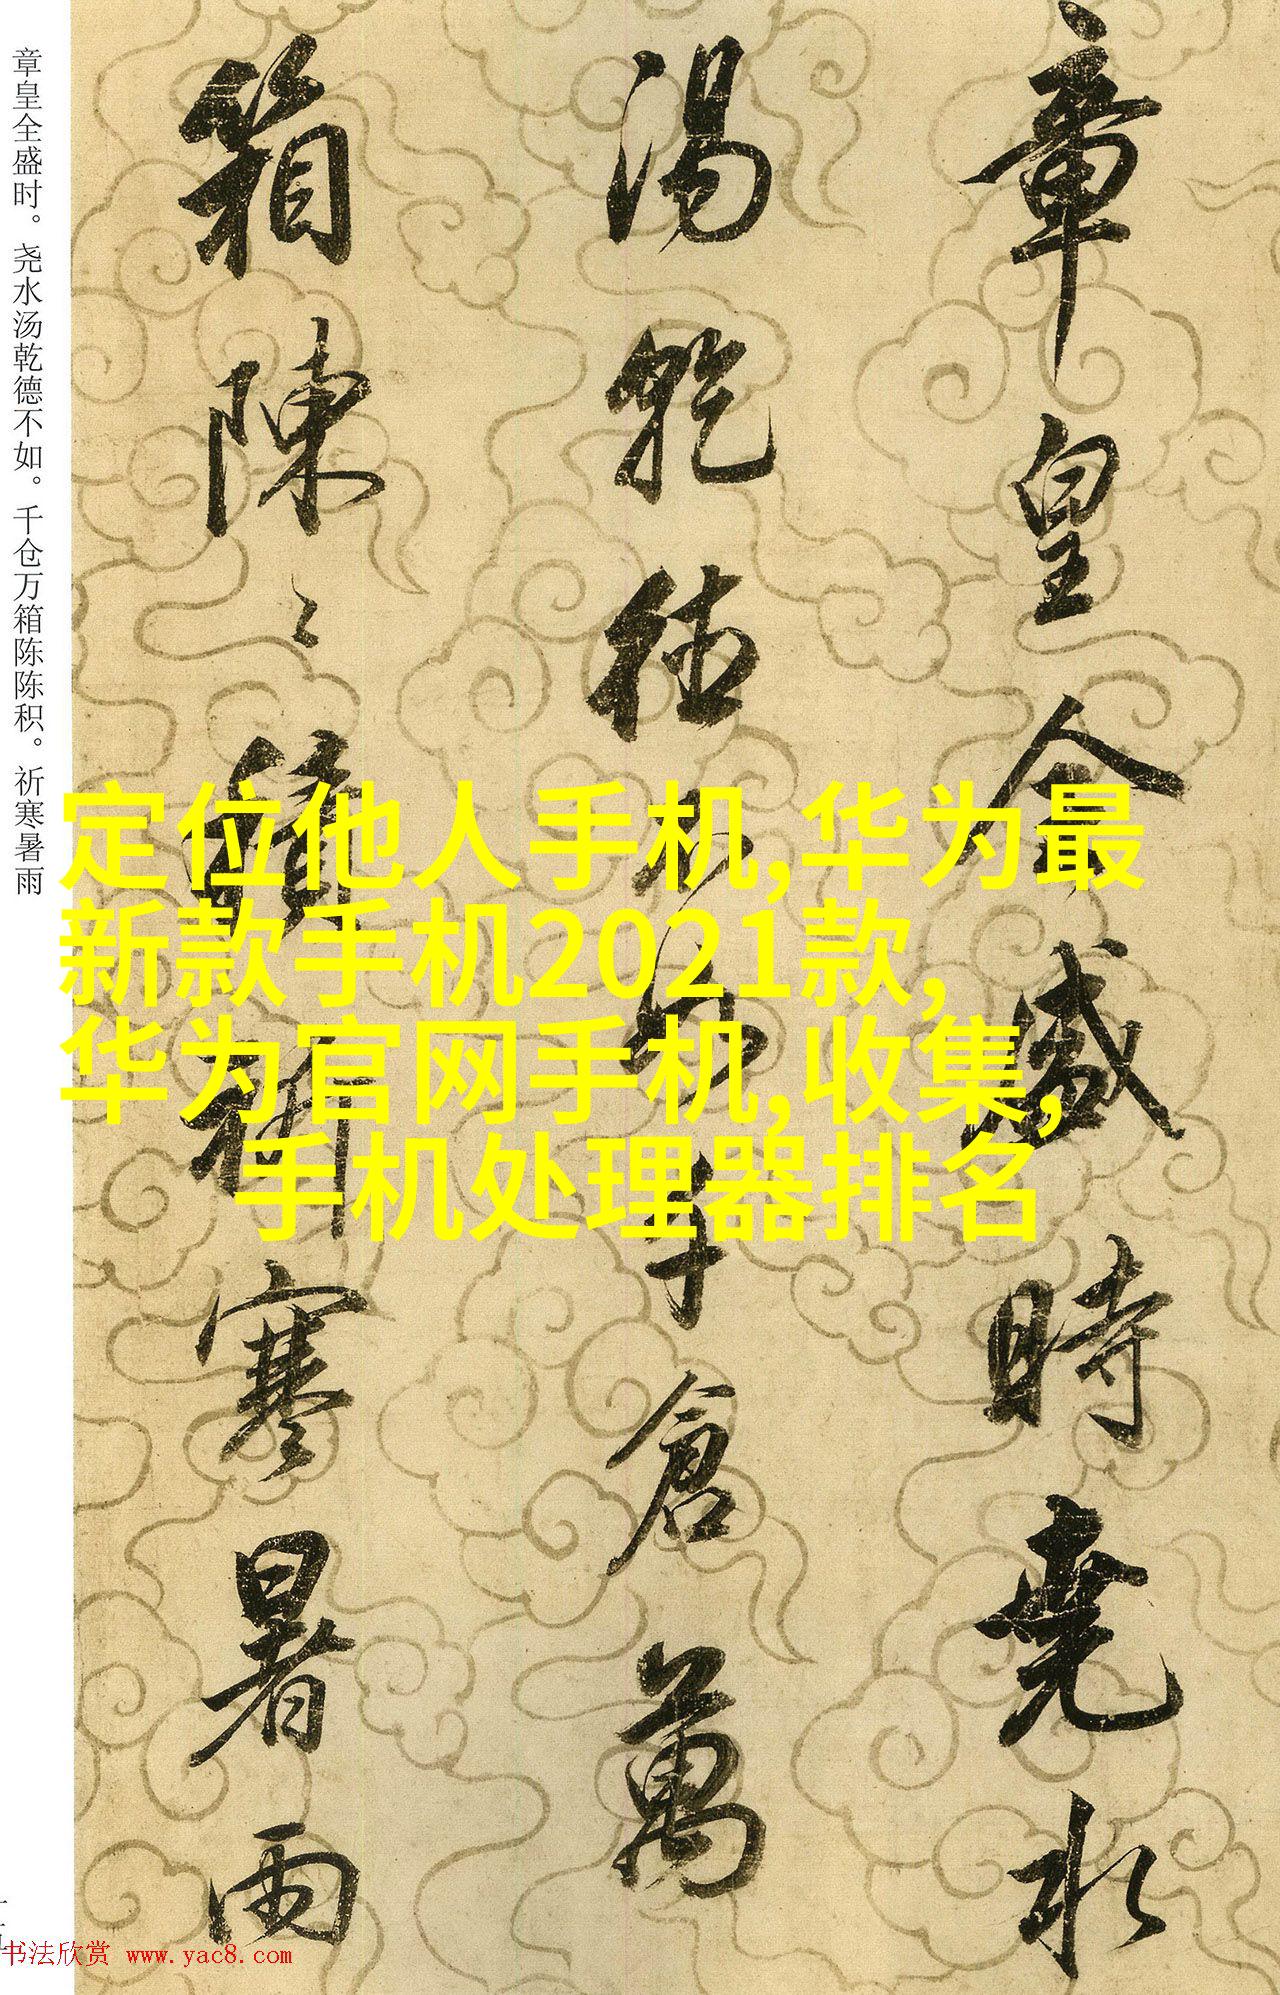 章皇全盛时。尧水汤乾德不如。千仓万箱陈陈积。祈寒暑雨
章皇全盛時堯水
湯乾德不如千倉萬
箱陳〻積祈寒暑雨
定位他人手机,华为最
新款手机2021款,
华为官网手机,收集,
手机处理器排名
书法欣赏 www.yac8.com